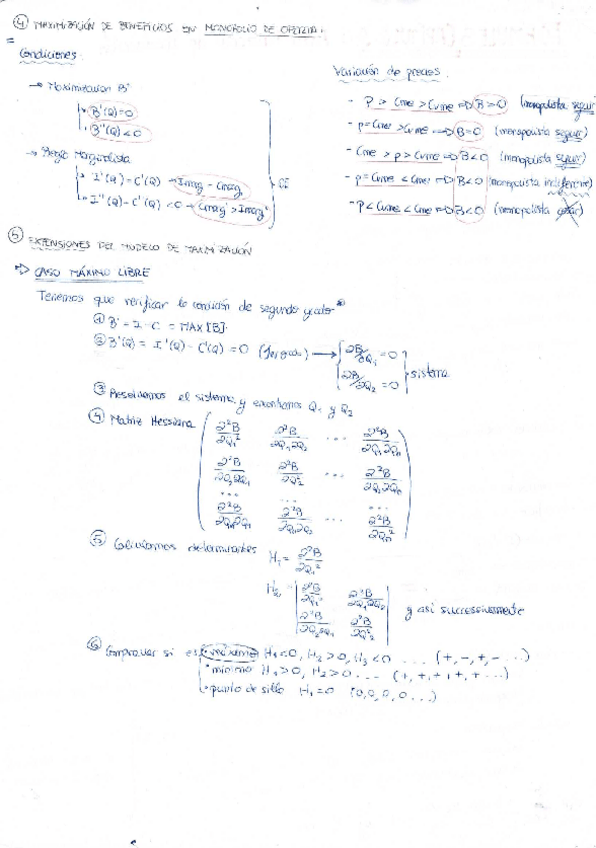 ④ MAXIMIZACIÓN DE BENEFICIOS EN MONOPOLIO DE OFERTA.
Condiciones.
→ Maximización B'
B'(Q)=0
B''(Q)<0
→ Regla Marginalista
I'(Q)-C'(Q) → Imarg - Cmarg
I''(Q)-C'(Q) <0 → Cmarg' > Imarg'
Variación de precios.
- P > Cme > Cvme => B>0 (monopolista seguir)
- p=Cme > Cvme => B=0 (monopolista seguir)
- Cme > p > Cvme => B<0 (monopolista seguir)
- p=Cvme < Cme => B<0 (monopolista indiferente)
- P < Cvme < Cme => B<0 (monopolista
⑤ EXTENSIONES DEL MODELO DE MAXIMIZACIÓN
CASO MÁXIMO LIBRE
Tenemos que verificar la condición de segundo grado
① B = I - C = MAX [B].
② B'(Q) = I'(Q) - C'(Q) = 0 (1er grado) → ∂B/∂Q₁ = 0
∂B/∂Q₂ = 0
sistema
③ Resolvemos el sistema y encontramos Q₁ y Q₂
④ Matriz Hessiana
∂²B/∂Q₁² ∂²B/∂Q₁∂Q₂ ... ∂²B/∂Q₁∂Qₙ
∂²B/∂Q₂∂Q₁ ∂²B/∂Q₂² ... ∂²B/∂Q₂∂Qₙ
... ... ...
∂²B/∂Qₙ∂Q₁ ∂²B/∂Qₙ∂Q₂ ... ∂²B/∂Qₙ²
⑤ determinantes H₁ = ∂²B/∂Q₁²
H₂ = ∂²B/∂Q₁² ∂²B/∂Q₁∂Q₂
∂²B/∂Q₂∂Q₁ ∂²B/∂Q₂² y así successivamente
⑥ Comprovar si es máximo H₁<0, H₂>0, H₃<0 ... (+,-,+,-...)
mínimo H₁>0, H₂>0 ... (+,+,+,+...)
punto de silla H₁=0 (0,0,0,0...)